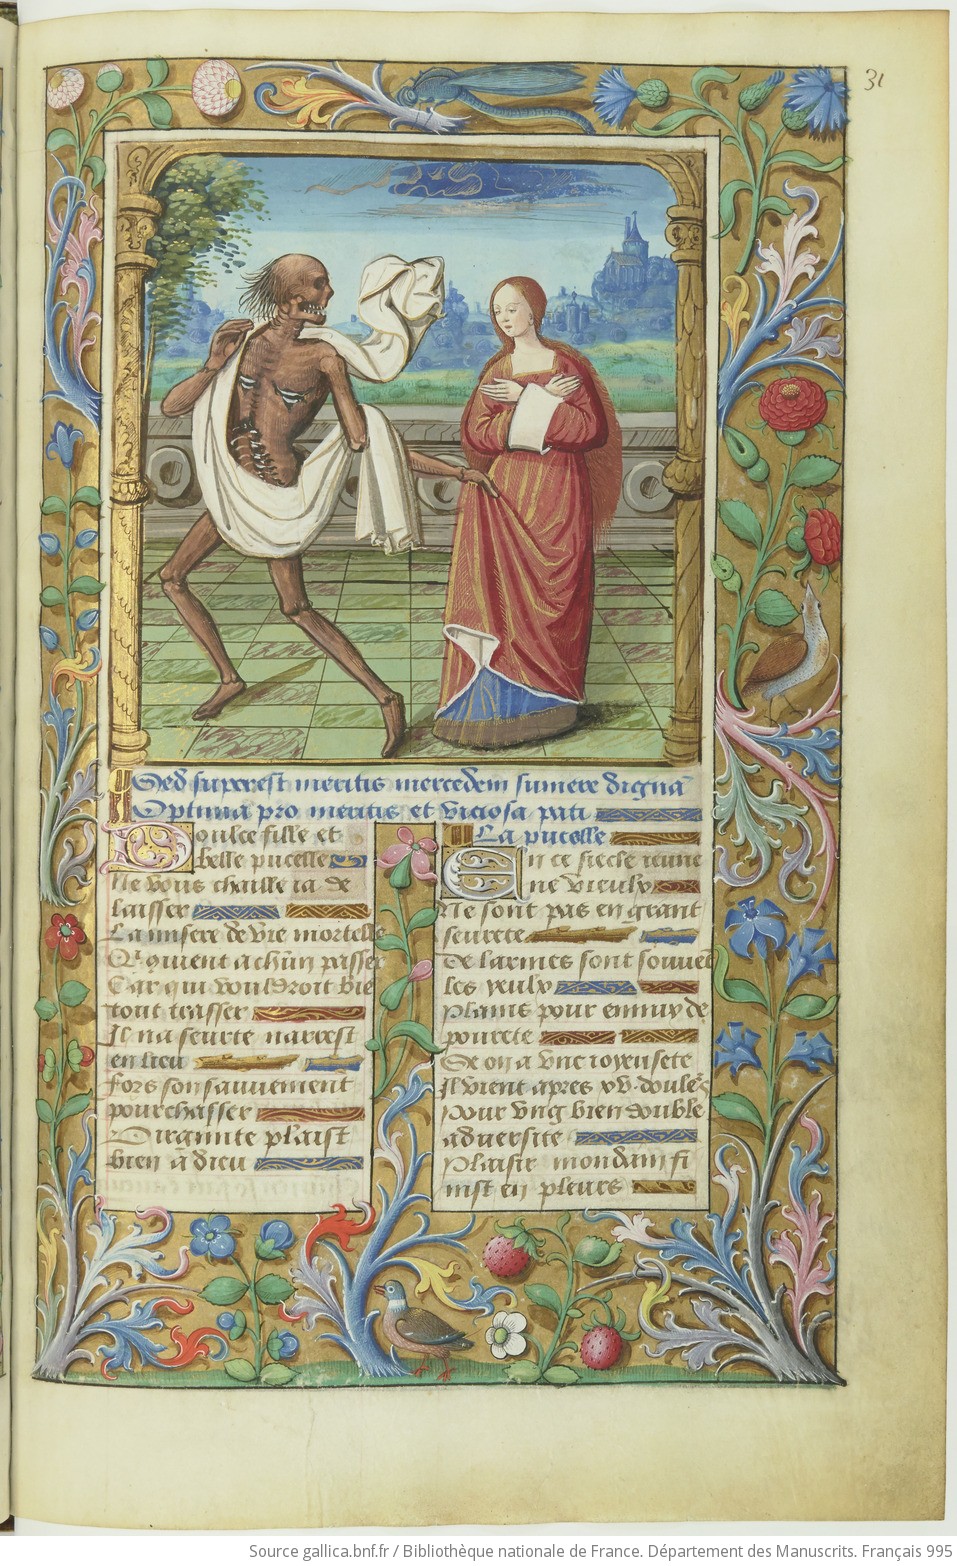 31
Sed superest meritis mercedem sumere dignā
Optima pro meritis et viciosa pati
Doulce fille et
belle pucelle
Ne vous chaille ia de
laisser
La misere de vr̄e mortelle
Quil quient a chūn passer
Car qui vouldroit bie
tout trasser
Il na seurte narrest
en lieu
fors son sauuement
pourchasser
Virginite plaist
bien a dieu
La pucelle
En ce siecle ieune
ne vieulx
Ne sont pas en grant
seurete
De larmes sont souuēt
les yeulx
plains pour ennuy de
pourete
Se on a vne ioyeusete
Il vient apres xv doule's
Pour vng bien double
aduersite
Plaisir mondain fi
nist en pleurs
Source gallica.bnf.fr / Bibliothèque nationale de France. Département des Manuscrits. Français 995